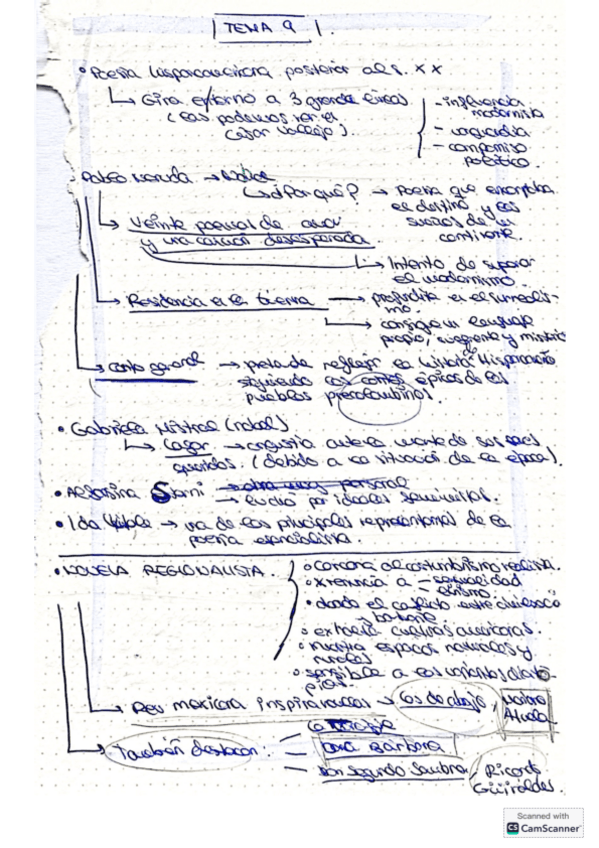 TEMA 9
• Poesía hispanoamericana posterior al s. XX
↳ Gira entorno a 3 grandes líneas
(las podemos ver en
César Vallejo).
- influencia
modernista
- vanguardia
- compromiso
político.
Pablo Neruda → Nobel
↳ ¿Por qué? → Poesía que encarna
el destino y los
sueños de un
continente.
↳ Veinte poemas de amor
y una canción desesperada
↳ Intento de superar
el modernismo.
↳ Residencia en la tierra → profundiza en el surrealis-
mo.
↳ consigue un lenguaje
propio, sugerente y
↳ Canto general → pretende reflejar la historia de Hispanoam
siguiendo los cantos épicos de los
pueblos precolombinos.
• Gabriela Mistral (nobel)
↳ Lagar → angustia ante la muerte de sus seres
queridos. (debido a la situación de la época).
• Alfonsina Storni → obra muy personal
→ luchó por ideales feministas.
• Ida Vitale → una de las principales representantes de la
poesía esencialista.
• NOVELA REGIONALISTA.
costumbrismo realista.
a - sexualidad
- erotismo
• donde el conflicto entre civilización
→ barbarie
culturas
• muestra espacios naturales y
rurales
• sensible a las variantes diató-
picas.
↳ Rev mexicana inspira → Los de abajo,
Mariano
Azuela
↳ También destacan:
- La vorágine
- Doña Bárbara
- Don Segundo Sombra, Ricardo
Güiraldes.
Scanned with
CS CamScanner